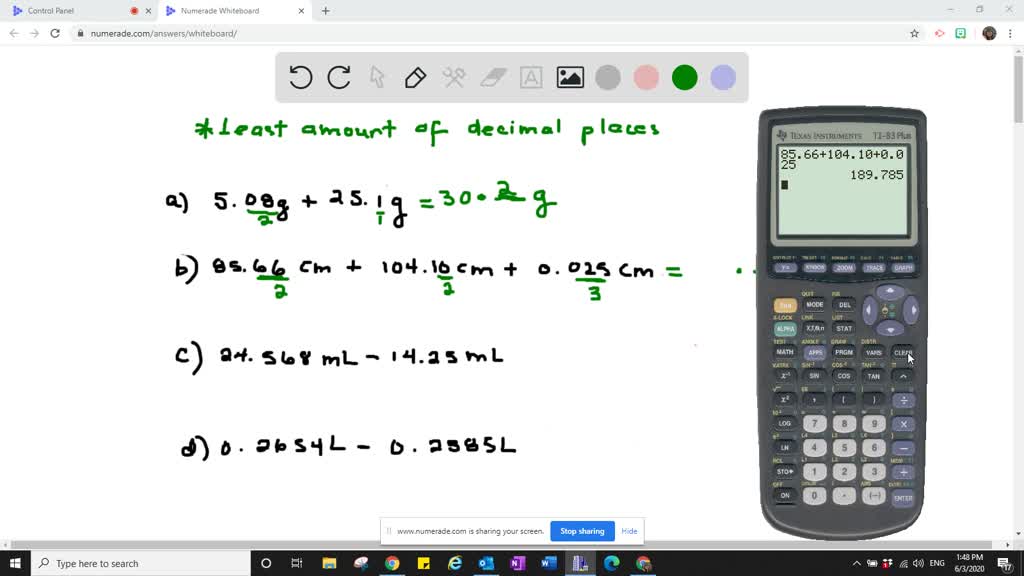 Control Panel
Numerade Whiteboard
numerade.com/answers/whiteboard/
*least amount of decimal places
TEXAS INSTRUMENTS TI-83 Plus
85.66+104.10+0.0
25
189.785
a) 5.08g + 25.1g = 30.2 g
2 1
b) 85.66 cm + 104.10 cm + 0.025 cm = ..
2 2 3
c) 24.568 mL - 14.25 mL
d) 0.2654 L - 0.2585 L
Y= WINDOW ZOOM TRACE GRAPH
QUIT INS
2nd MODE DEL
A-LOCK LINK LIST
ALPHA X,T,θ,n STAT
TEST ANGLE DRAW DISTR
MATH APPS PRGM VARS CLEAR
MATRX SIN⁻¹ COS⁻¹ TAN⁻¹ π
x⁻¹ SIN COS TAN ^
x² , ( ) ÷
LOG 7 8 9 ×
LN 4 5 6 −
STO▸ 1 2 3 +
OFF
ON 0 . (−) ENTER
www.numerade.com is sharing your screen. Stop sharing Hide
Type here to search
ENG
1:48 PM
6/3/2020
17